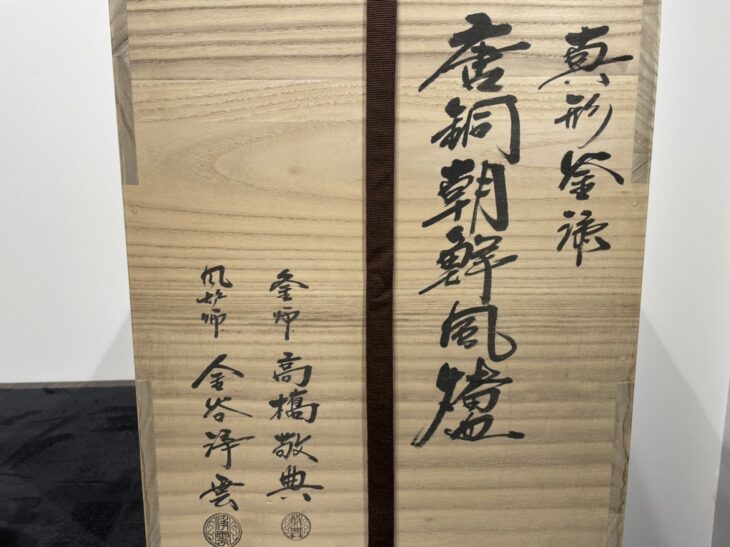 真形釜添
唐銅朝鮮風爐
釜師 高橋敬典
風炉師 金谷浄雲
敬典
浄雲